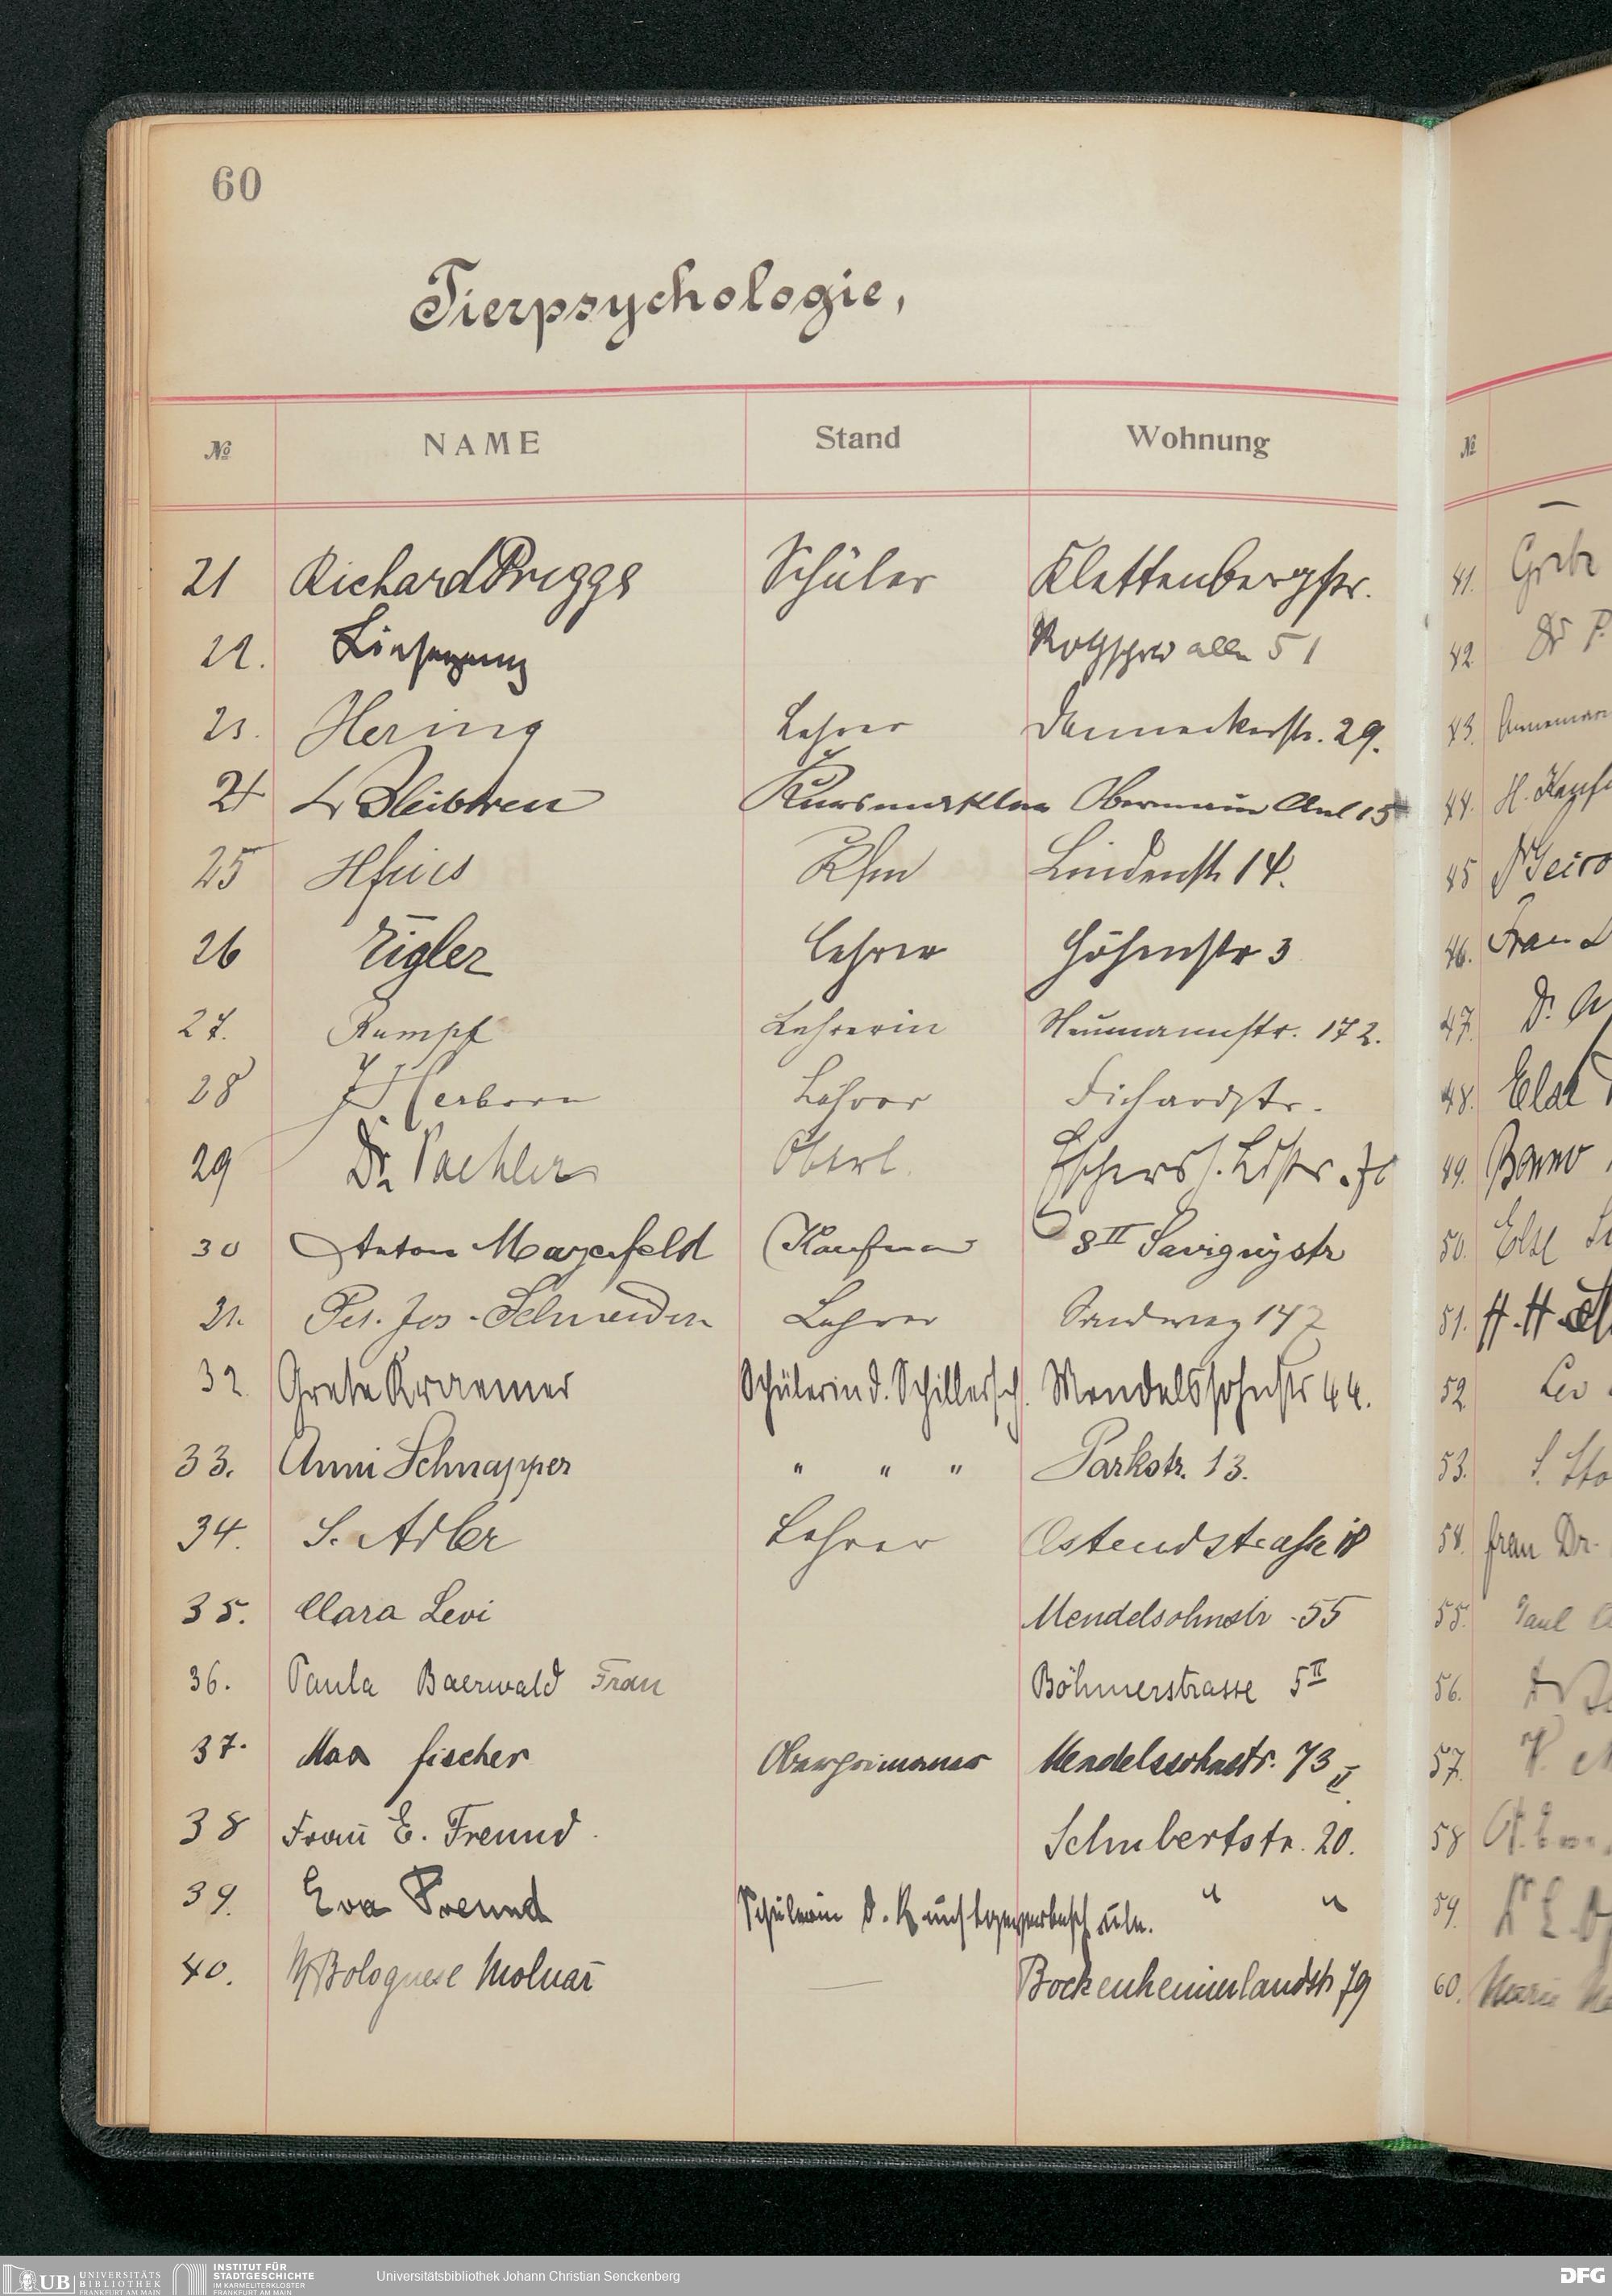 60
Tierpsychologie,
№ NAME Stand Wohnung
21 Richard Briggs Schüler Klettenbergstr.
22. 51
23. Hering Lehrer Danneckerstr. 29.
24 Kursmakler Obermain Anl 15
25 Kfm Lindenstr 14.
26 Eigler Lehrer Höhenstr 3
27. Rumpf Lehrerin Neumannstr. 172.
28 J Herborn Lehrer Fichardstr.
29 Dr. Oberl.
30 Anton Mayerfeld Kaufman 8 II Savignystr
31. Pet. Jos. Schneider Lehrer Sandweg 147
32. Grete Kraemer Schülerin d. Schillersch. Mendelssohnstr 44.
33. Anni Schnapper " " " Parkstr. 13.
34. S. Adler Lehrer Ostendstraße 18
35. Clara Levi Mendelsohnstr 55
36. Paula Baerwald Frau Böhmerstrasse 5 II
37. Max Fischer Oberprimaner Mendelssohnstr. 73 II
38 Frau E. Freund. Schubertstr. 20.
39. Eva Freund Schülerin d. Kunstgewerbeschule. " "
40. Bolognese Molnar — Bockenheimerlandstr 79
№
41.
42. Dr
43.
44. H.
45
46. Frau
47. Dr.
48.
49.
50. Else
51. H. H.
52
53.
54. Frau Dr.
55. Paul
56.
57.
58
59.
60.
UB UNIVERSITÄTS BIBLIOTHEK FRANKFURT AM MAIN
INSTITUT FÜR STADTGESCHICHTE IM KARMELITERKLOSTER FRANKFURT AM MAIN
Universitätsbibliothek Johann Christian Senckenberg
DFG